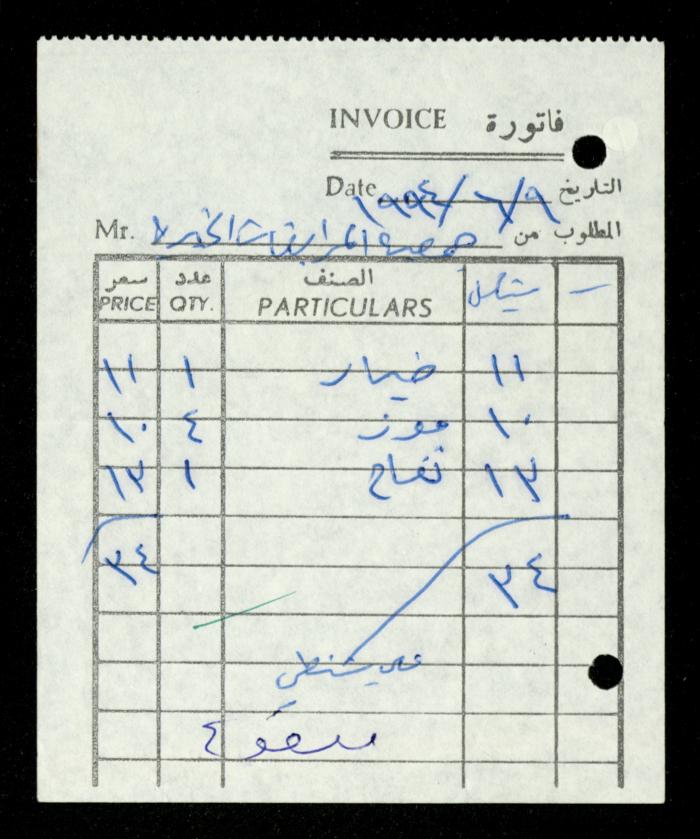 INVOICE فاتورة
Date ١٩٩٤/٦/٩ التاريخ
Mr. جمعية المرابطات الخيرية المطلوب من
سعر عدد الصنف شيكل —
PRICE QTY. PARTICULARS
١١ ١ خيار ١١
١٠ ٤ موز ١٠
١٣ ١ تفاح ١٣
٣٤ ٣٤
مدفوع